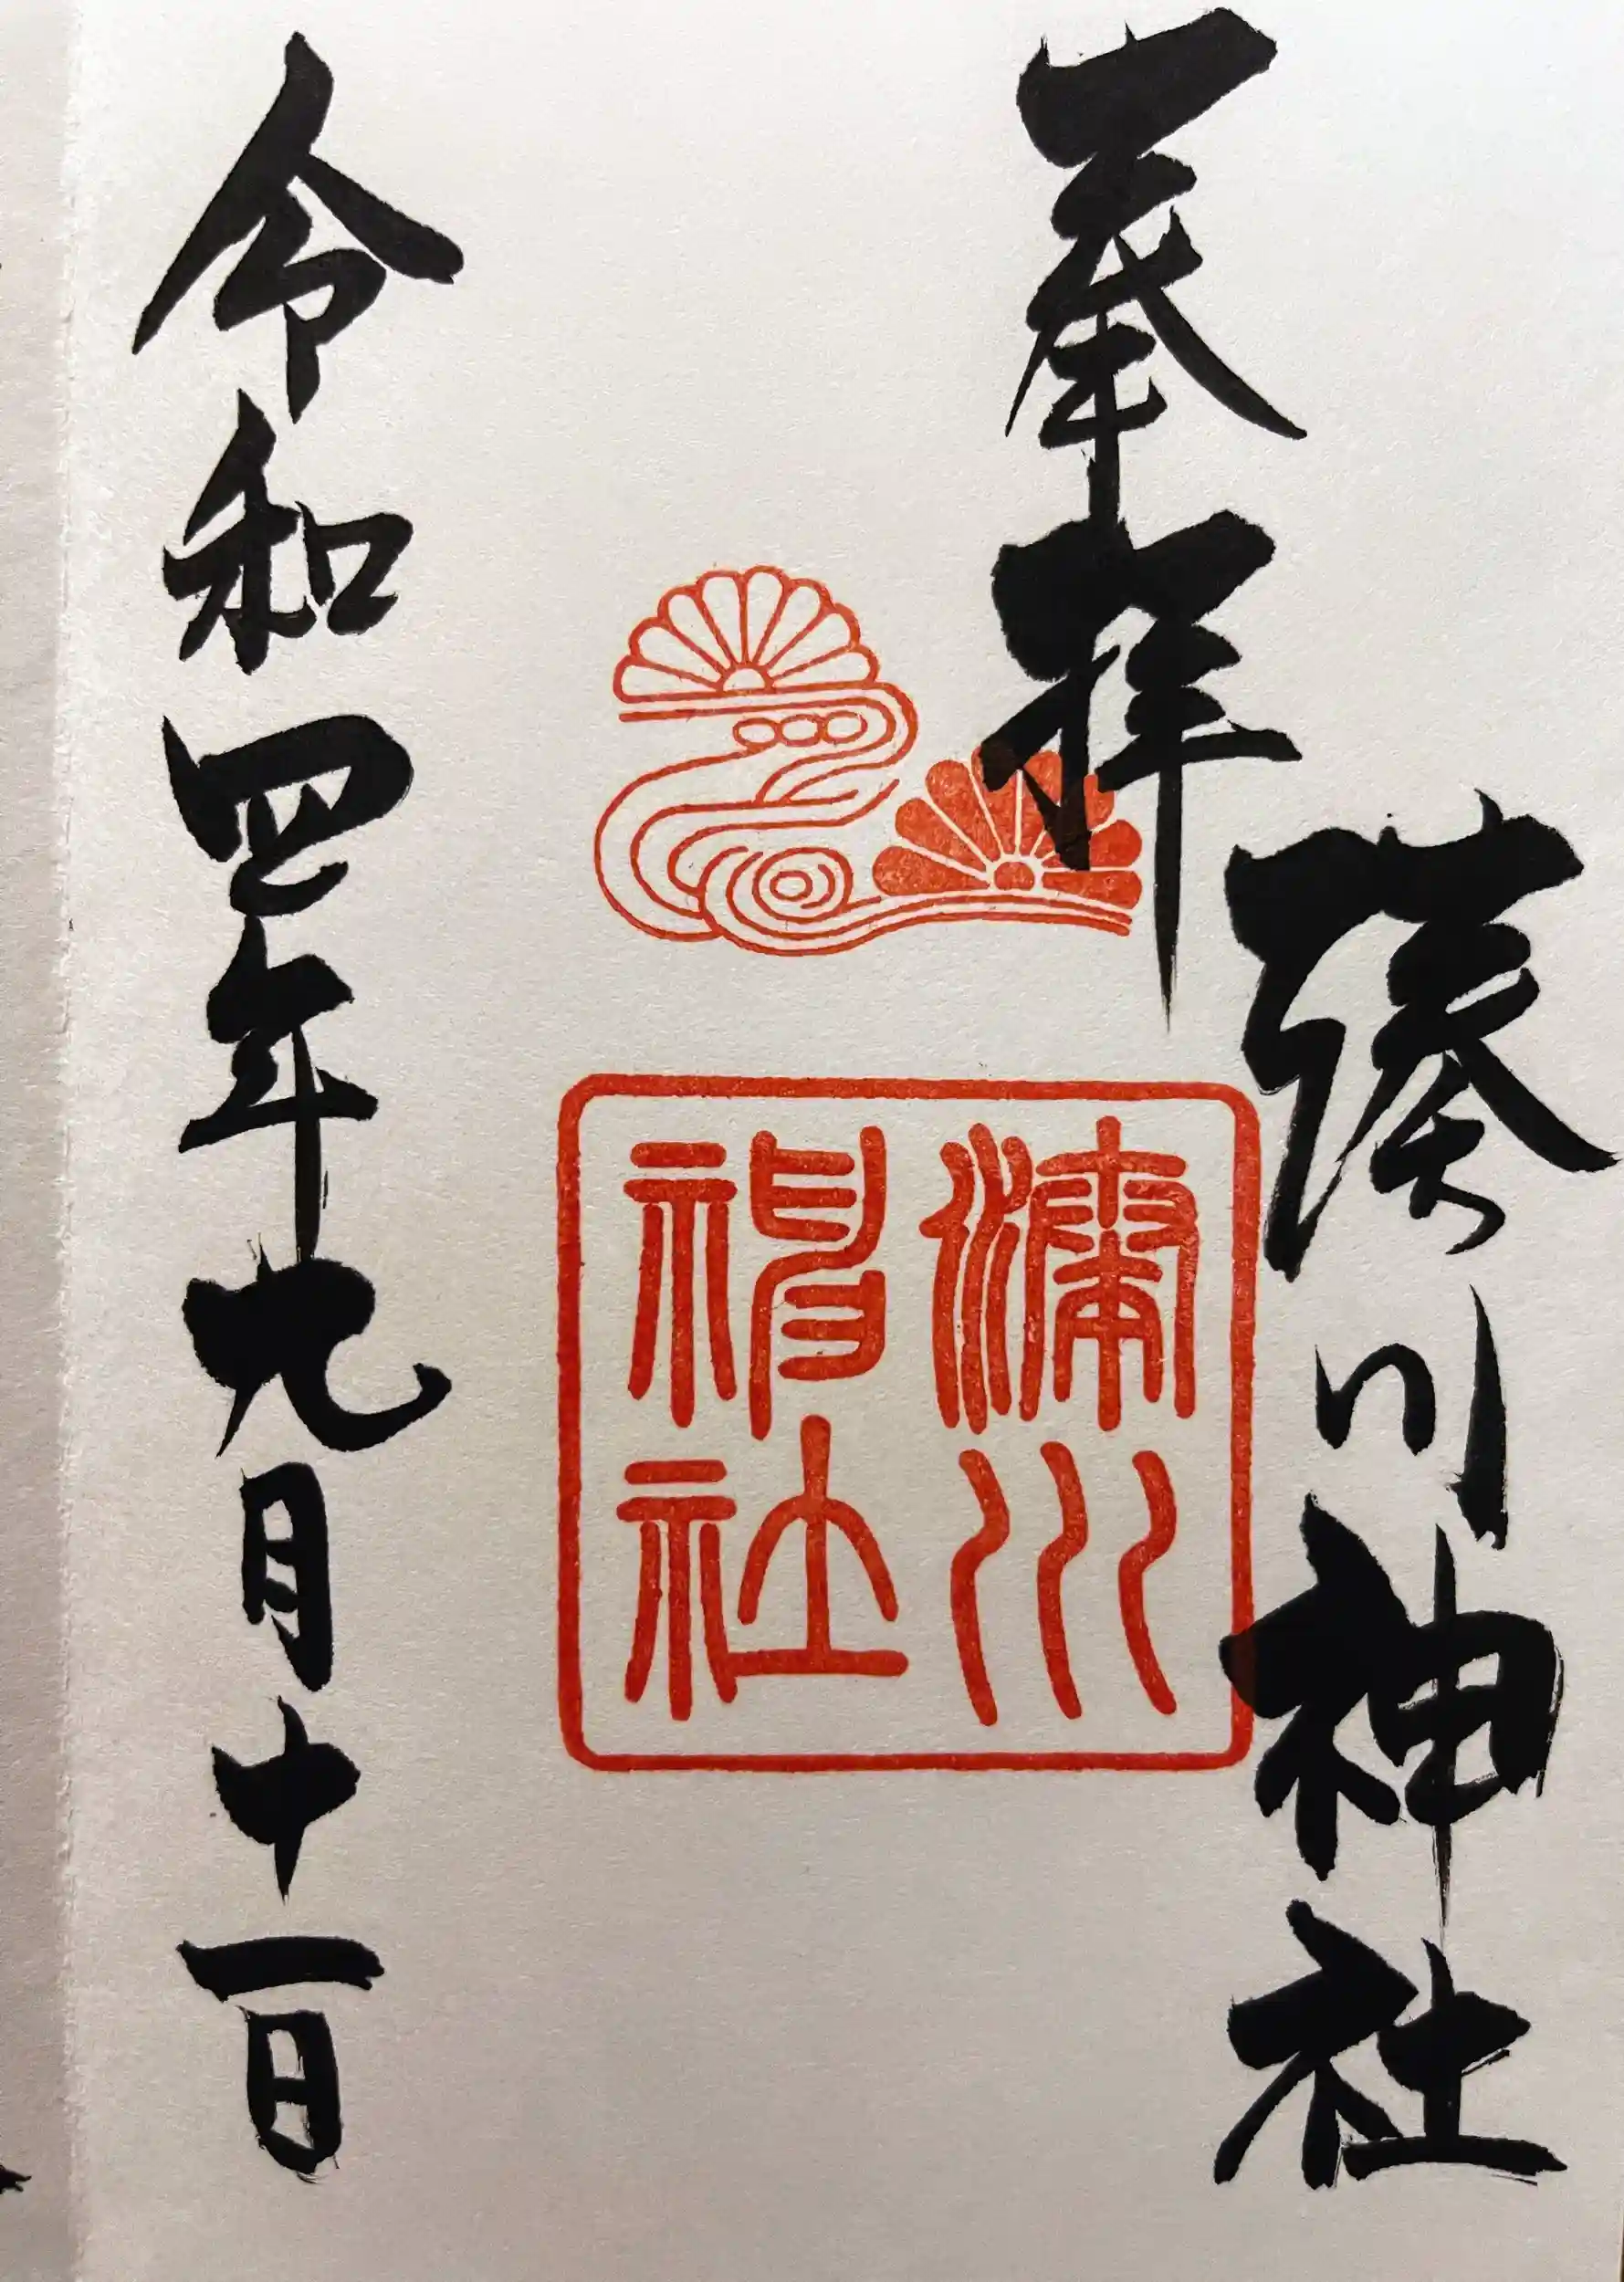 奉拝
湊川神社
湊川
神社
令和四年九月十一日